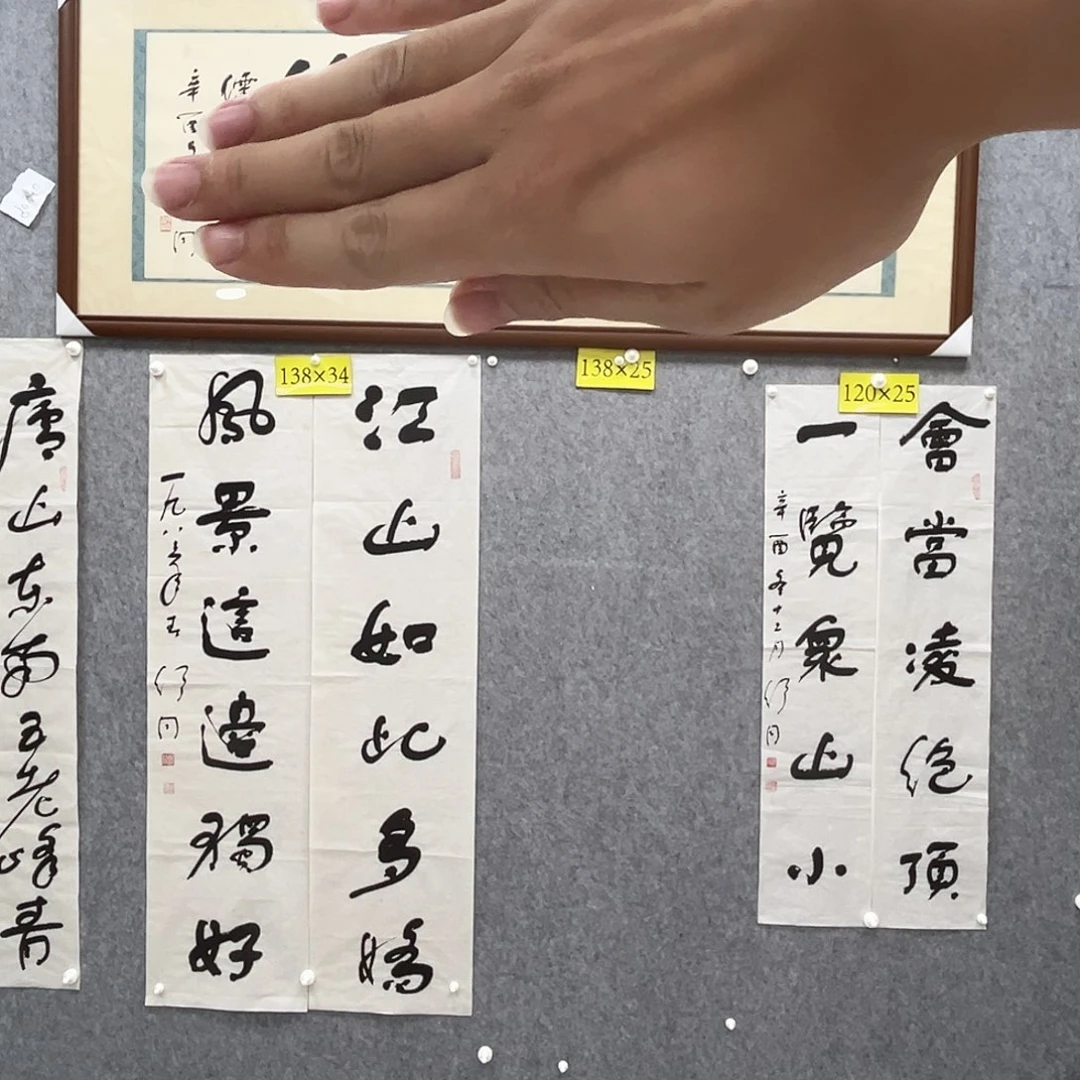 辛酉
同
138×34
138×25
120×25
會當凌絕頂
一覽衆山小
辛酉年十二月 舒同
江山如此多嬌
風景這邊獨好
一九八 年 舒同
廬山东南五老峰青